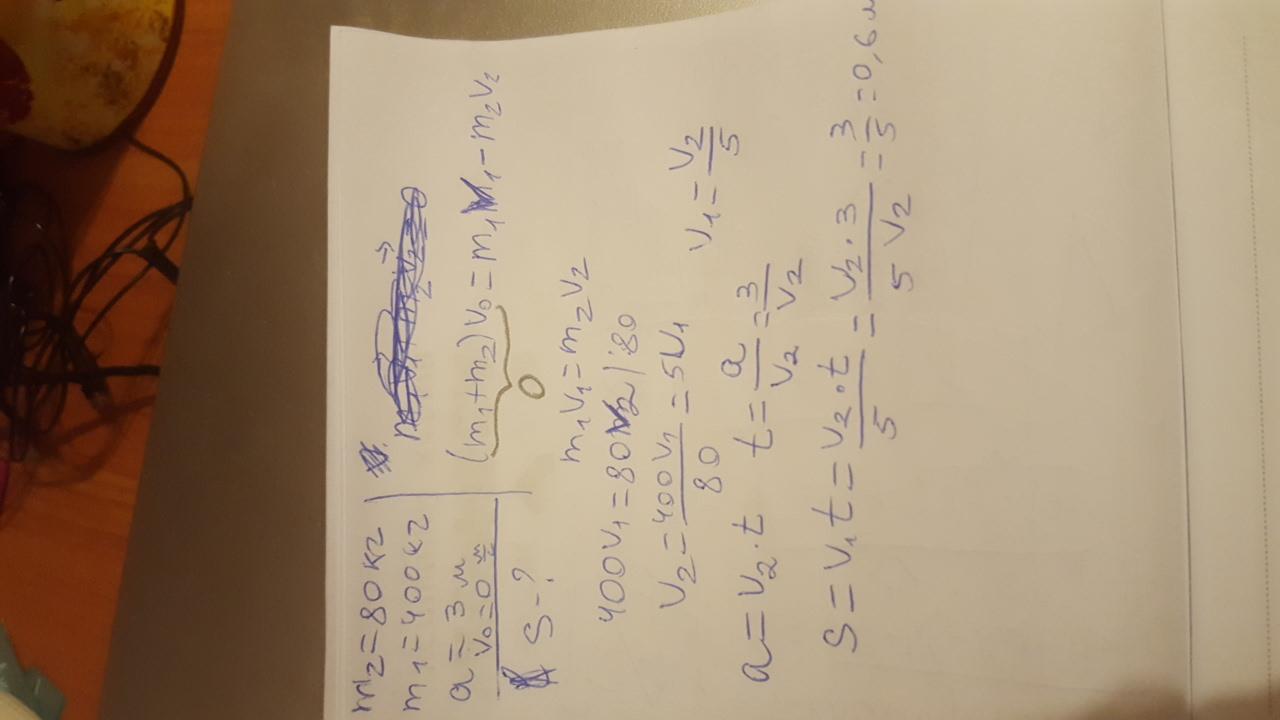 m₂=80кг
m₁=400кг
a=3м
v₀=0 м
S-?
(m₁+m₂)v₀=m₁v₁-m₂v₂
0
m₁v₁=m₂v₂
400v₁=80v₂|:80
v₂=400v₁/80=5v₁
v₁=v₂/5
a=v₂·t t=a/v₂=3/v₂
S=v₁t=v₂·t/5=v₂·3/5v₂=3/5=0,6м